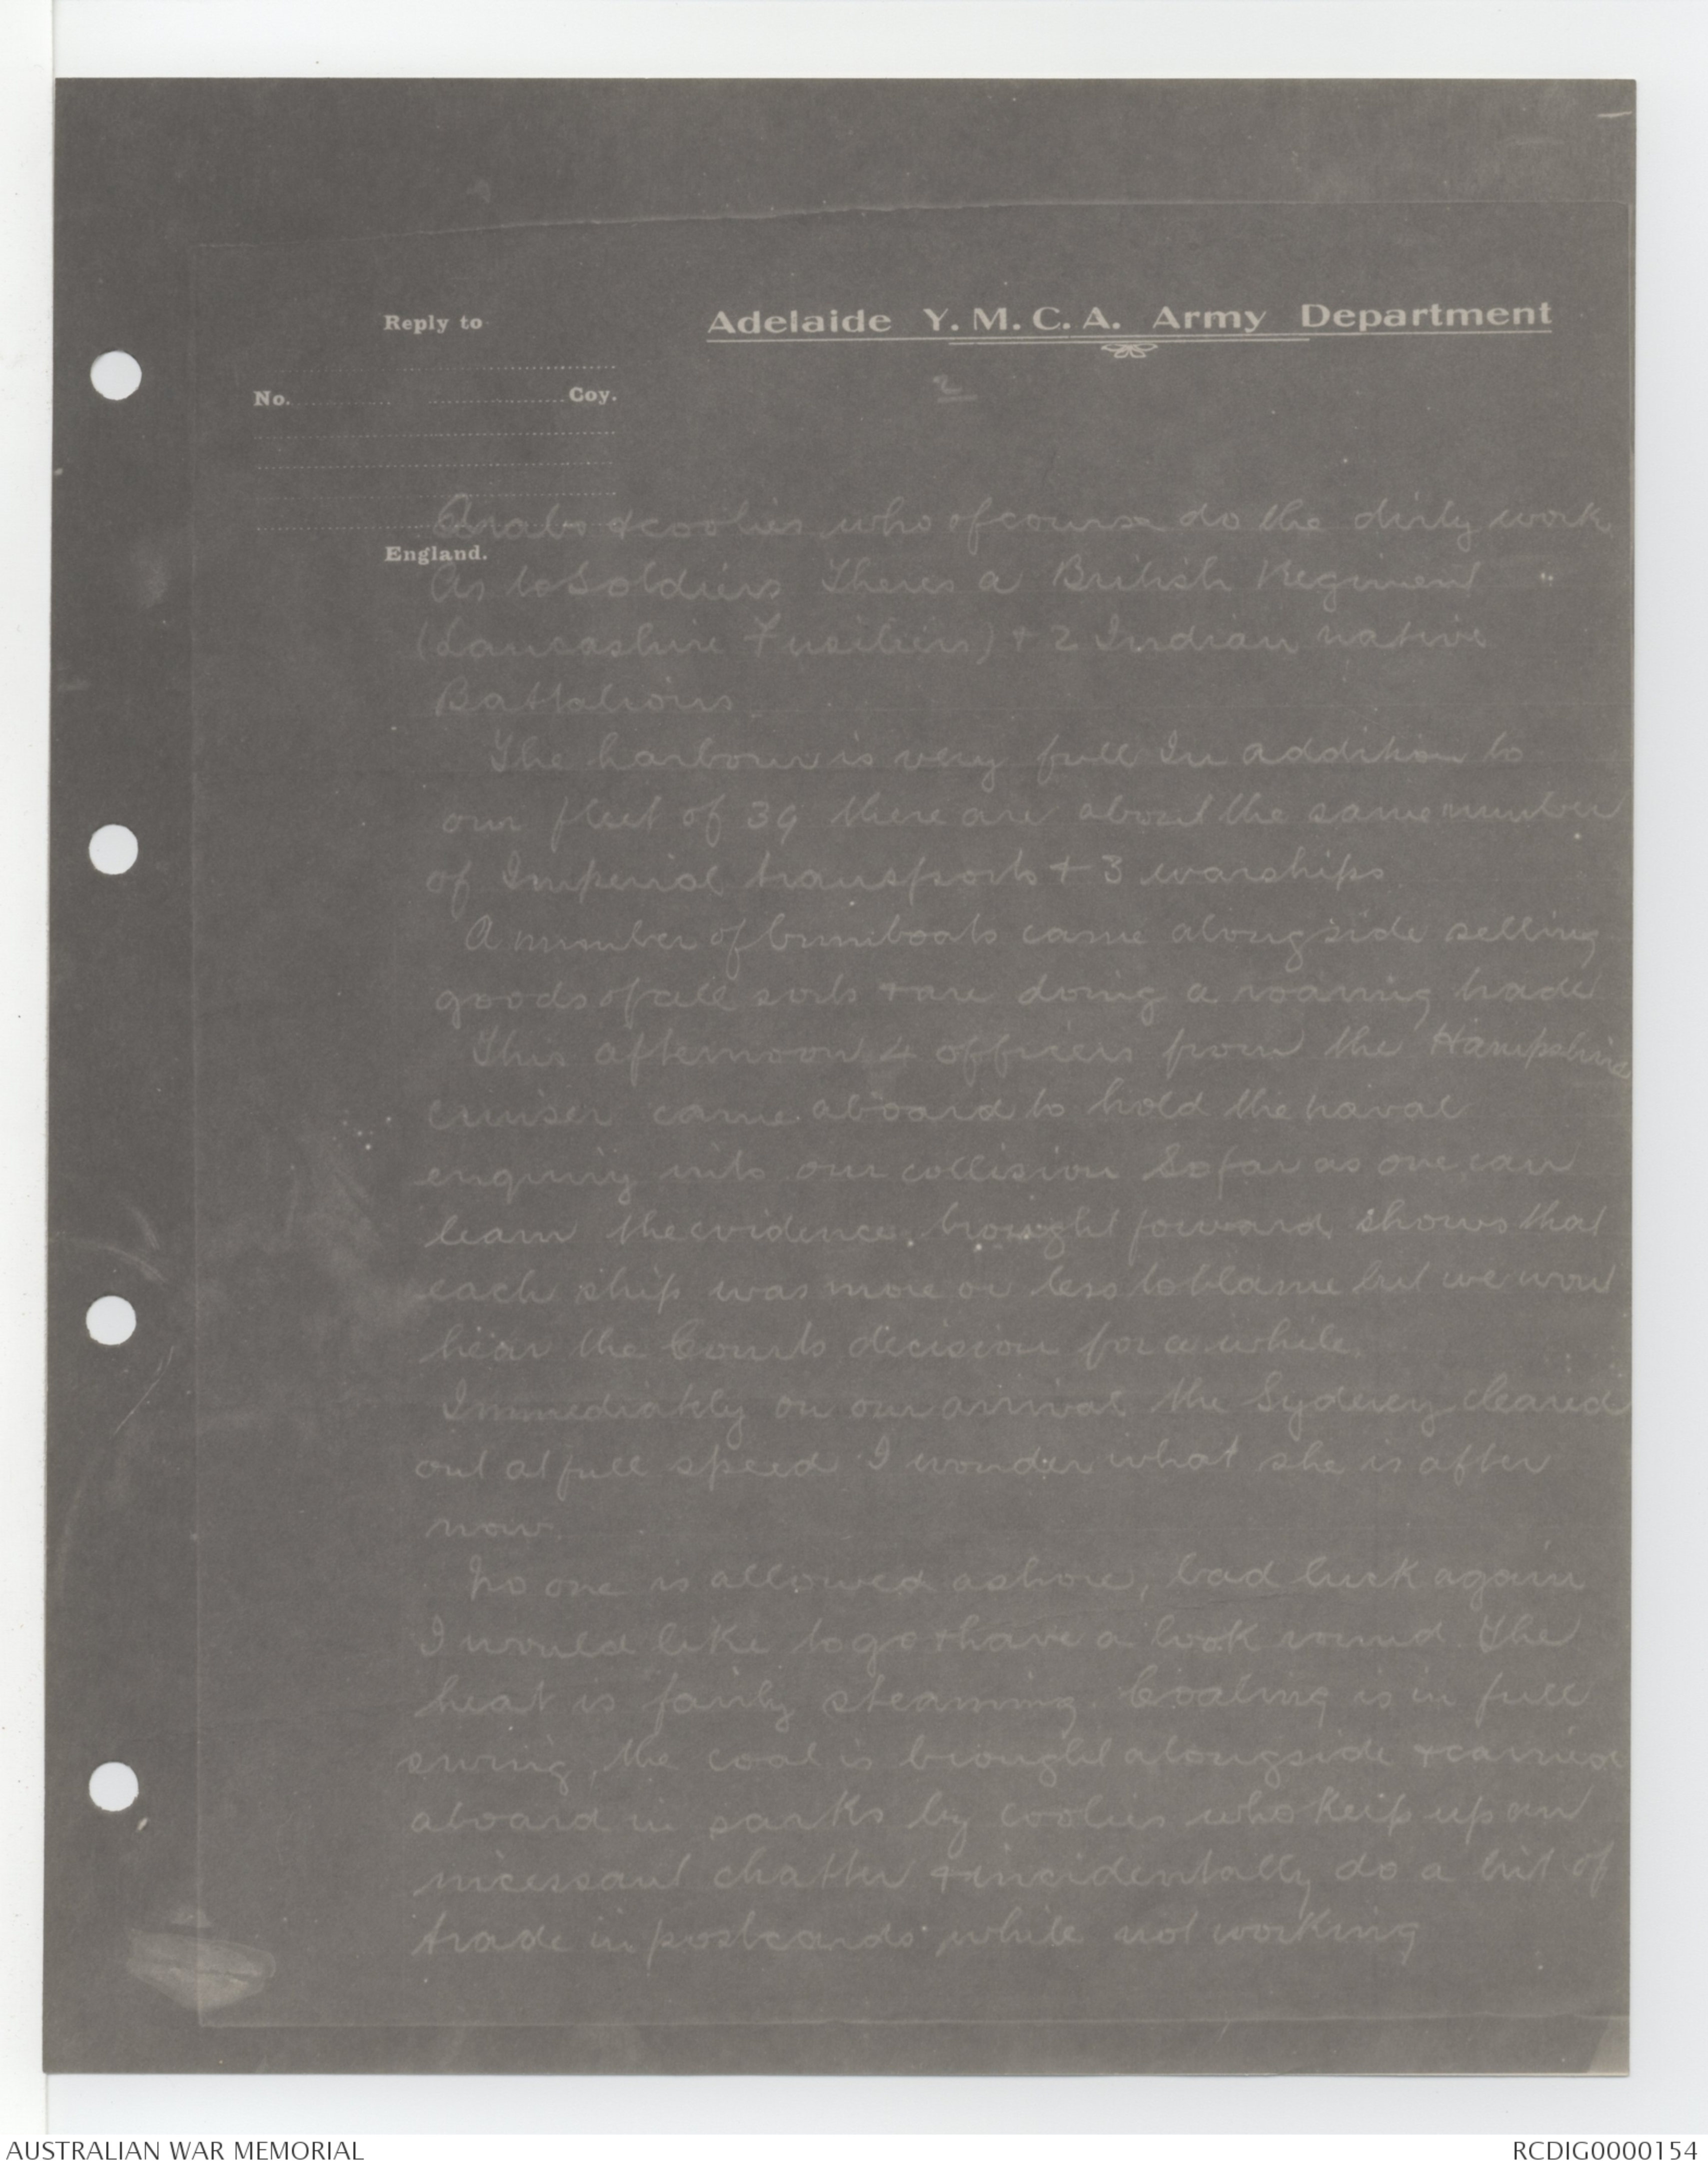 Reply to
Adelaide Y. M. C. A. Army Department
No. Coy.
2
England.
Arabs & coolies who of course do the dirty work
As to Soldiers Theres a British Regiment
(Lancashire Fusiliers) & 2 Indian native
Battalions
The harbour is very full In addition to
our fleet of 39 there are about the same number
of Imperial transports & 3 warships
A number of bumboats came alongside selling
goods of all sorts & are doing a roaring trade
This afternoon 4 officers from the Hampshire
cruiser came aboard to hold the naval
enquiry into our collision So far as one can
learn the evidence brought forward shows that
each ship was more or less to blame but we wont
hear the Courts decision for a while.
Immediately on our arrival the Sydeney cleared
out at full speed I wonder what she is after
now.
No one is allowed ashore, bad luck again
I would like to go & have a look round. The
heat is fairly steaming. Coaling is in full
swing, the coal is brought alongside & carried
aboard in sacks by coolies who keep up an
incessant chatter & incidentally do a bit of
trade in postcards while not working
AUSTRALIAN WAR MEMORIAL
RCDIG0000154